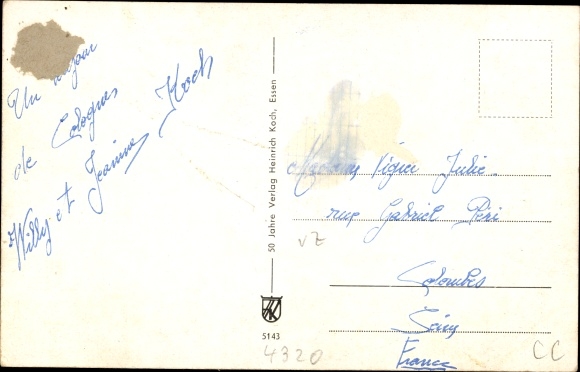 Un bonjour
de Cologne,
Willy et Jeanine Koch
50 Jahre Verlag Heinrich Koch, Essen
5143
4320
Madame Vigier Julie.
rue Gabriel Péri
vz
Colombes
Seine
France
CC